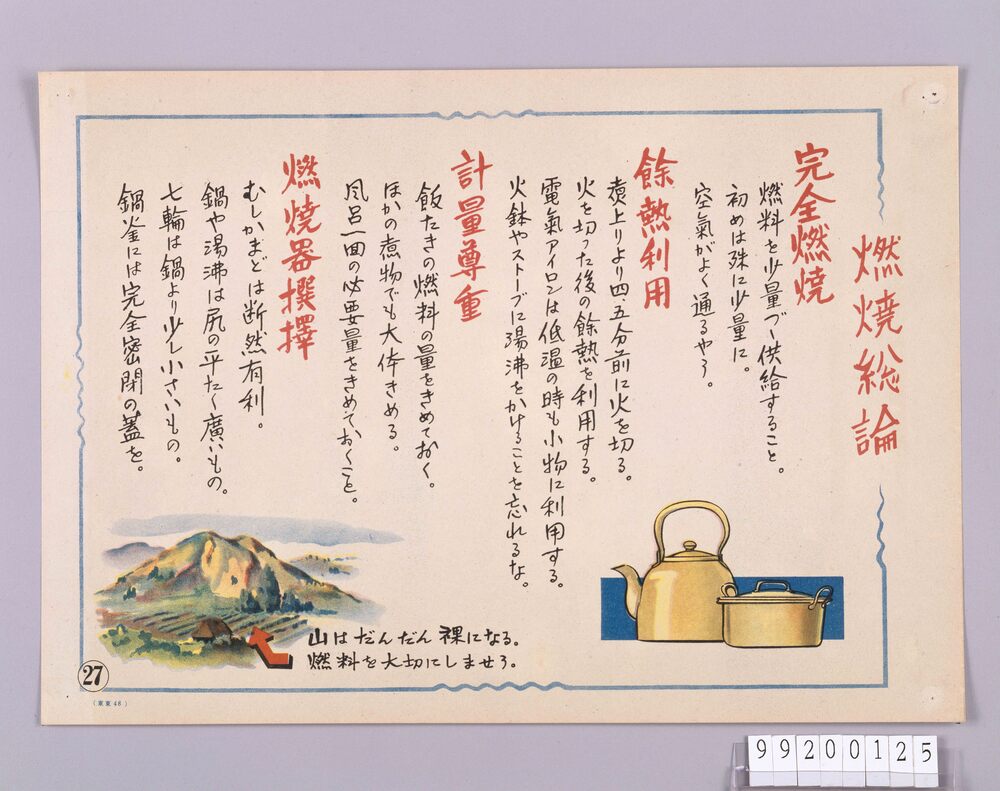 燃焼総論
完全燃焼
燃料を少量づゝ供給すること。
初めは殊に少量に。
空氣がよく通るやう。
餘熱利用
煮上りより四、五分前に火を切る。
火を切つた後の餘熱を利用する。
電氣アイロンは低温の時も小物に利用する。
火鉢やストーブに湯沸をかけることを忘れるな。
計量尊重
飯たきの燃料の量をきめておく。
ほかの煮物でも大体きめる。
風呂一回の必要量をきめておくこと。
燃焼器撰擇
むしかまどは断然有利。
鍋や湯沸は尻の平たく廣いもの。
七輪は鍋より少し小さいもの。
鍋釜には完全密閉の蓋を。
山はだんだん裸になる。
燃料を大切にしませう。
27
(東東48)
99200125